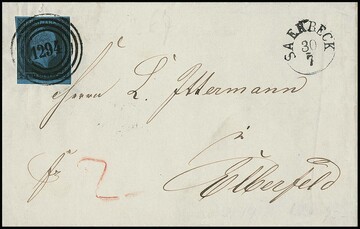 1294
SAERBECK
30
7
Herrn L. Ittermann
in
Elberfeld
fr
2